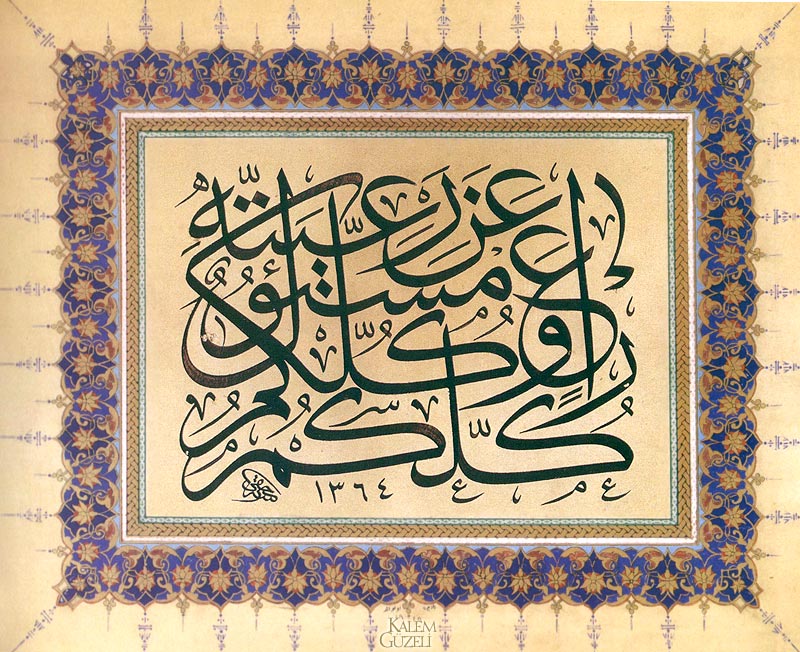 كُلُّكُم رَاعٍ
وَكُلُّكُم مسئول
عَن رَعِيَّتِهِ
١٣٦٤
KALEM
GÜZELİ